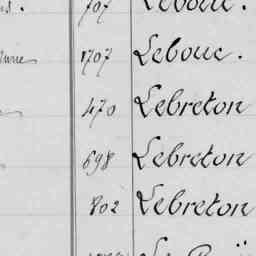 707 Lebouc.
1707 Lebouc.
470 Lebreton
698 Lebreton
802 Lebreton